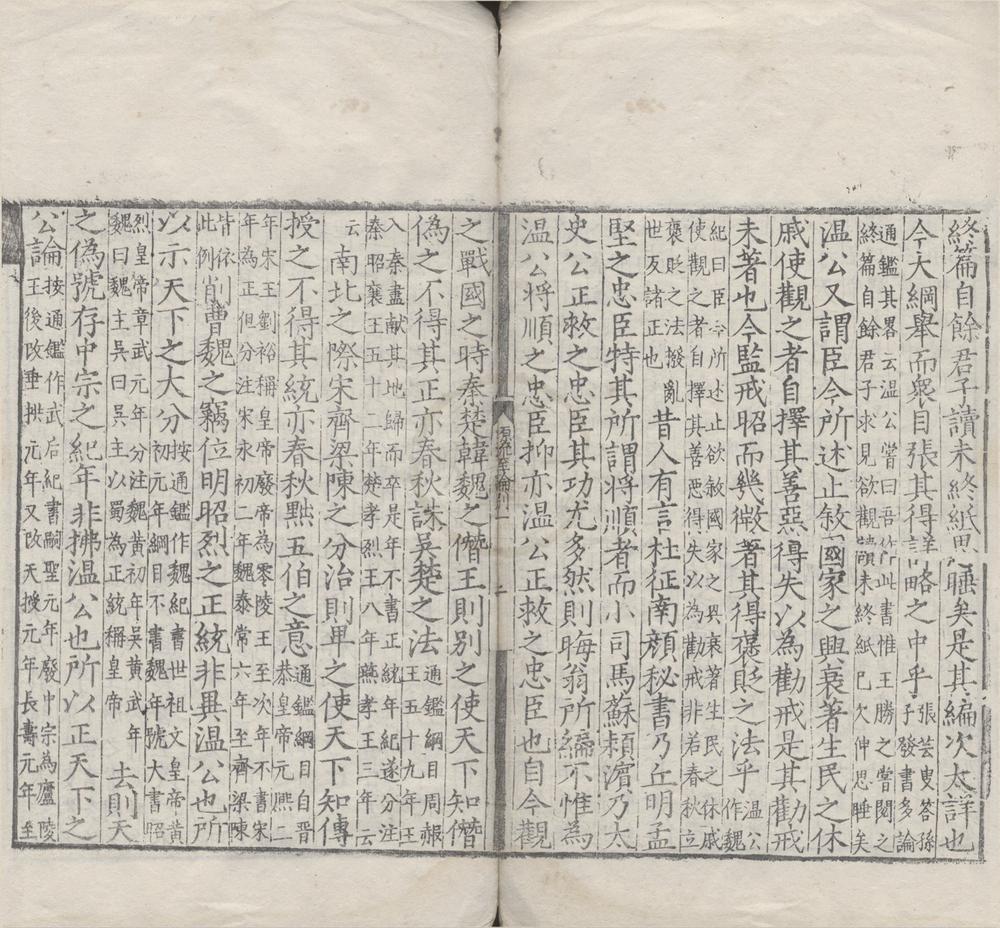 終篇自餘君子讀未終紙思睡矣是其編次太詳也
今大綱舉而衆目張其得詳略之中乎張芸叟答孫子發書多論
通鑑其畧云温公嘗曰吾作此書惟王勝之嘗閱之終篇自餘君子求見欲觀讀未終紙已欠伸思睡矣
温公又謂臣今所述止敘國家之興衰著生民之休
戚使觀之者自擇其善惡得失以為勸戒是其勸戒
未著也今監戒昭而幾微著其得褒貶之法乎温公作魏
紀曰臣今所述止欲敘國家之興衰著生民之休戚使觀之者自擇其善惡得失以為勸戒非若春秋立
褒貶之法撥亂世反諸正也昔人有言杜征南顔秘書乃丘明孟
堅之忠臣特其所謂將順者而小司馬蘇潁濵乃太
史公正救之忠臣其功尤多然則晦翁所編不惟為
温公將順之忠臣抑亦温公正救之忠臣也自今觀
之戰國之時秦楚韓魏之僭王則别之使天下知僭
偽之不得其正亦春秋誅吳楚之法通鑑綱目周赧王五十九年
入秦盡獻其地歸而卒是年不書正統年紀遂分注秦昭襄王五十二年楚孝烈王八年燕孝王三年云
云南北之際宋齊梁陳之分治則卑之使天下知傳
授之不得其統亦春秋黜五伯之意通鑑綱目自晉恭皇帝元熙二
年宋王劉裕稱皇帝廢帝為零陵王至次年不書宋年為正但分注宋永初二年魏泰常六年至齊梁陳
皆依此例削曹魏之竊位明昭烈之正統非異温公也所
以示天下之大分按通鑑作魏紀書世祖文皇帝黄初元年綱目不書魏年號大書昭
烈皇帝章武元年分注魏黄初年吳黄武年魏曰魏主吳曰吳主以蜀為正統稱皇帝去則天
之偽號存中宗之紀年非拂温公也所以正天下之
公論按通鑑作武后紀書嗣聖元年廢中宗為廬陵王後改垂拱元年又改天授元年長壽元年至